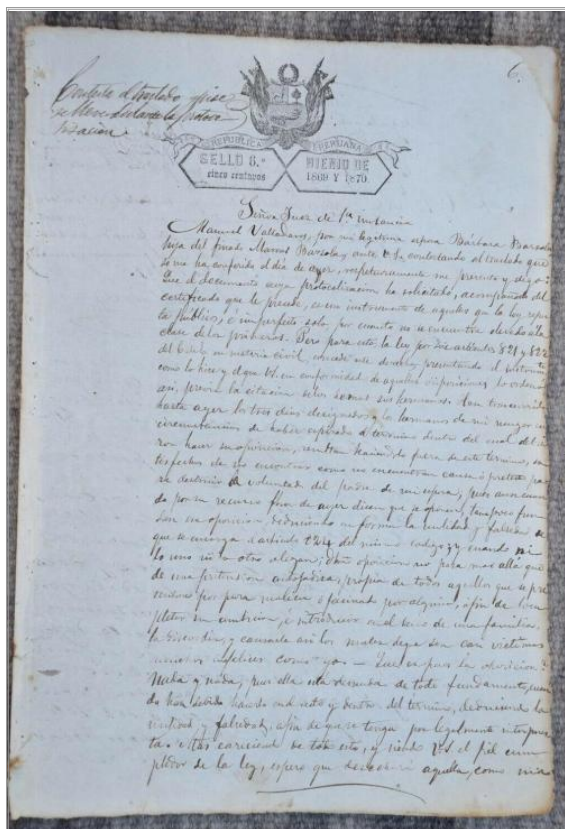 6.
Contesta el traslado y pide
se lleve adelante la protoco
lización
REPUBLICA PERUANA
SELLO 6.º BIENIO DE
cinco centavos 1869 Y 1870
Señor Juez de 1.ª instancia
Manuel Valladares, por mi legítima esposa Bárbara Barzola
hija del finado Marcos Barzola, ante V. contestando al traslado que
se me ha conferido el día de ayer, respetuosamente me presento y digo:
Que el documento cuya protocolización he solicitado, acompañado del
certificado que le precede, es un instrumento de aquellos que la ley repu
ta público, é imperfecto solo por cuanto no se encuentra elevado á la
clase de los primeros. Pero para esto, la ley por los artículos 821 y 822
del C. de E. en materia civil, concede este derecho, presentando el
como lo hice, y el que V. en conformidad de aquellas disposiciones lo ordenó
así, previa la citación sus hermanos. Han transcurrido
hasta ayer los tres días designados y los hermanos de mi
circunstancias de haber expirado el término dentro del cual debie
ron hacer su oposición, fuera de este término,
no encontrar como no encuentran causa ó pretesto pa
ra destruir la voluntad del padre de mi esposa, pues aun cuan
do por su recurso de ayer dicen que se oponen, tampoco fun
dan su oposición deduciendo en forma la nulidad y falsedad de
que se encarga el artículo del mismo código; y cuando ni
lo uno ni lo otro alegan, esta oposición no pasa mas allá que
de una pretension antojadiza, propia de todos aquellos que se
por pura malicia ó fascinado por alguno, afin de
su ambicion, é introducir en el seno de una familia,
la discordia, y causarle así los males que son victimas
muchos infelices como yo. — Que es pues la oposicion?
Nada y nada, pues ella está desnuda de todo fundamento, cuan
do han debido hacerlo y dentro del termino, deduciendo la
nulidad y falsedad, afin de que se tenga por legalmente interpues
ta estas carecen de todo esto, y siendo V. el fiel cum
plidor de la ley, espero que desechará aquella, como